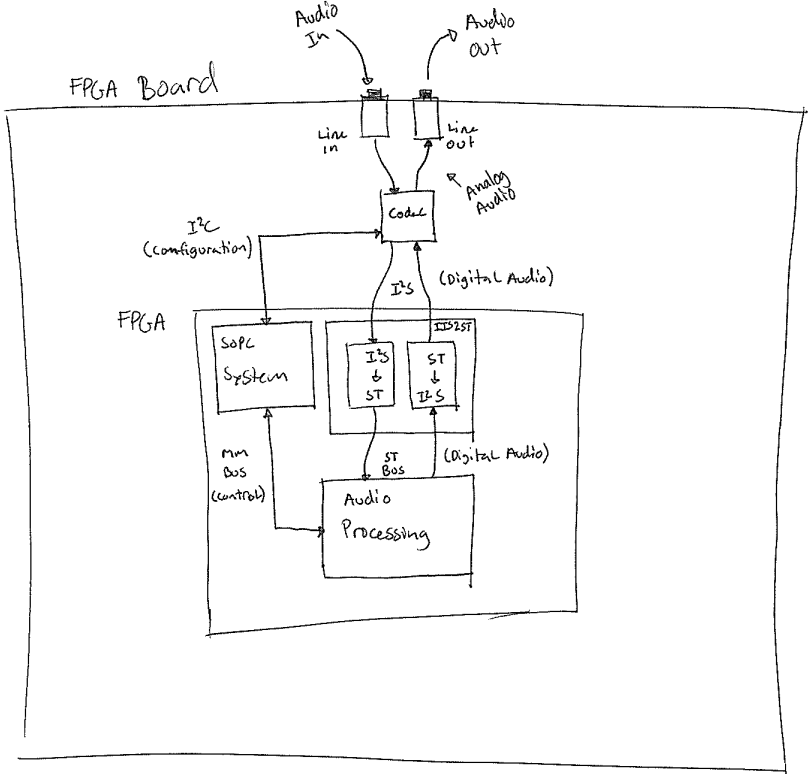 Audio
In
Audio
Out
FPGA Board
Line
in
Line
out
Analog
Audio
Codec
I²C
(Configuration)
I²S
(Digital Audio)
FPGA
SOPC
System
IIS2ST
I²S
↓
ST
ST
↓
I²S
MM
BUS
(control)
ST
BUS
(Digital Audio)
Audio
Processing